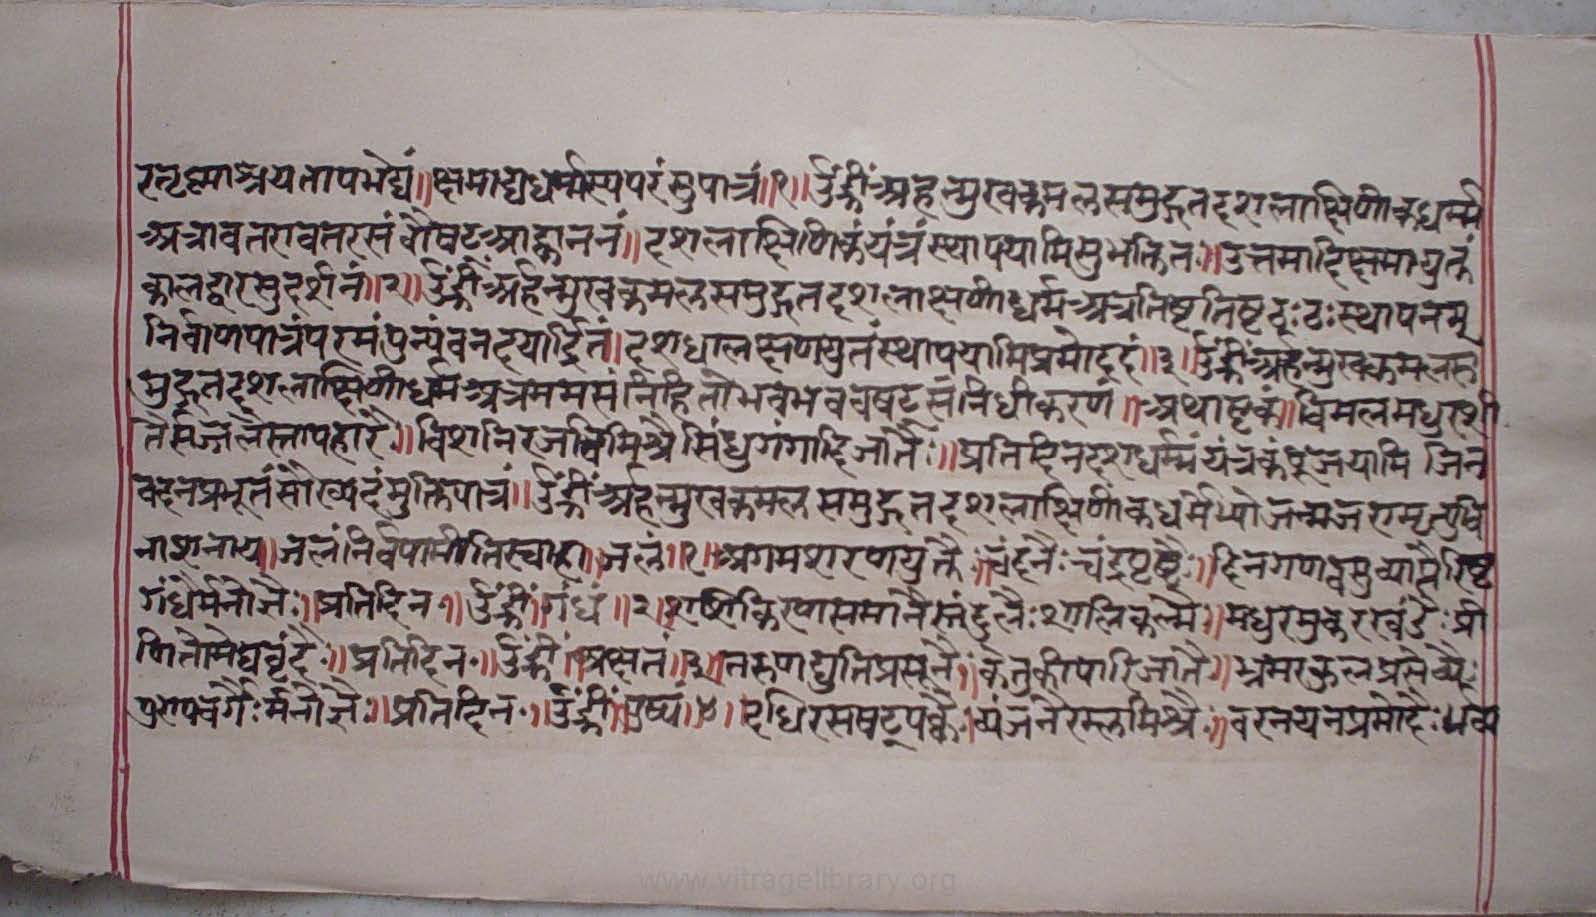 रतृष्माश्रयतापभेद्यं॥क्षमाद्यधर्मास्यपरंसुपात्रं॥१॥ॐह्रींअहन्मुखकमलसमुद्गतदशलाक्षिणीकधर्म्म
अत्रावतरावतरसंवौषट्आह्वाननं॥दशलाक्षिणिकंयंत्रंस्थापयामिसुभक्तितः॥उत्तमादिक्षमायुक्तं
कालद्वारसुदर्शनं॥२॥ॐह्रींअर्हन्मुखकमलसमुद्गतदशलाक्षणीधर्मअत्रतिष्टतिष्टठः२ःस्थापनम्
निर्वाणपात्रंपरमंपुन्यंवनदयार्द्रितं॥दशधालक्षणयुतंस्थापयामिप्रमोददं॥३॥ॐह्रींअर्हन्मुखकमलस
मुद्गतदशलाक्षिणीधर्मअत्रममसंनिहितोभवभववषट्संनिधीकरणं॥अथाष्टकं॥विमलमधुरशी
तैर्सज्जलैस्तापहारैः॥विशनिरजविमिश्रैसिंधुगंगादिजातैः॥प्रतिदिनदशधर्म्मंयंत्रकंपूजयामि जिन
वदनप्रभूतंसौख्यदंमुक्तिपात्रं॥ॐह्रींअर्हन्मुखकमलसमुद्गतदशलाक्षिणीकधर्मेभ्योजन्मजरामृत्युवि
नाशनाय॥जलंनिर्वपामीतिस्वाहा॥जलं॥१॥अगमशरणयुक्तैः॥चंदनैःचंद्रपृष्टैः॥दिनगण
गंधैर्मनोज्ञैः॥प्रतिदिन॰॥ॐह्रीं॥गंधं॥२॥शशिकिरणसमानैस्तंदुलैःशालिकल्मैः॥मधुरमुकरखंडैःप्री
णितोमेघवृंदैः॥प्रतिदिन॰॥ॐह्रीं॥अक्षतं॥३॥तरुणद्युतिप्रसूनैः॥केतुकीपारिजातैः॥भ्रमरकुलप्रसेव्यैः
पुष्पवर्गैःर्मनोज्ञैः॥प्रतिदिन॰॥ॐह्रीं॥पुष्पं॥४॥दधिरसषट्पक्वैः॥व्यंजनैरम्लमिश्रैः॥वरनयनप्रमोदैः
www.vitragelibrary.org